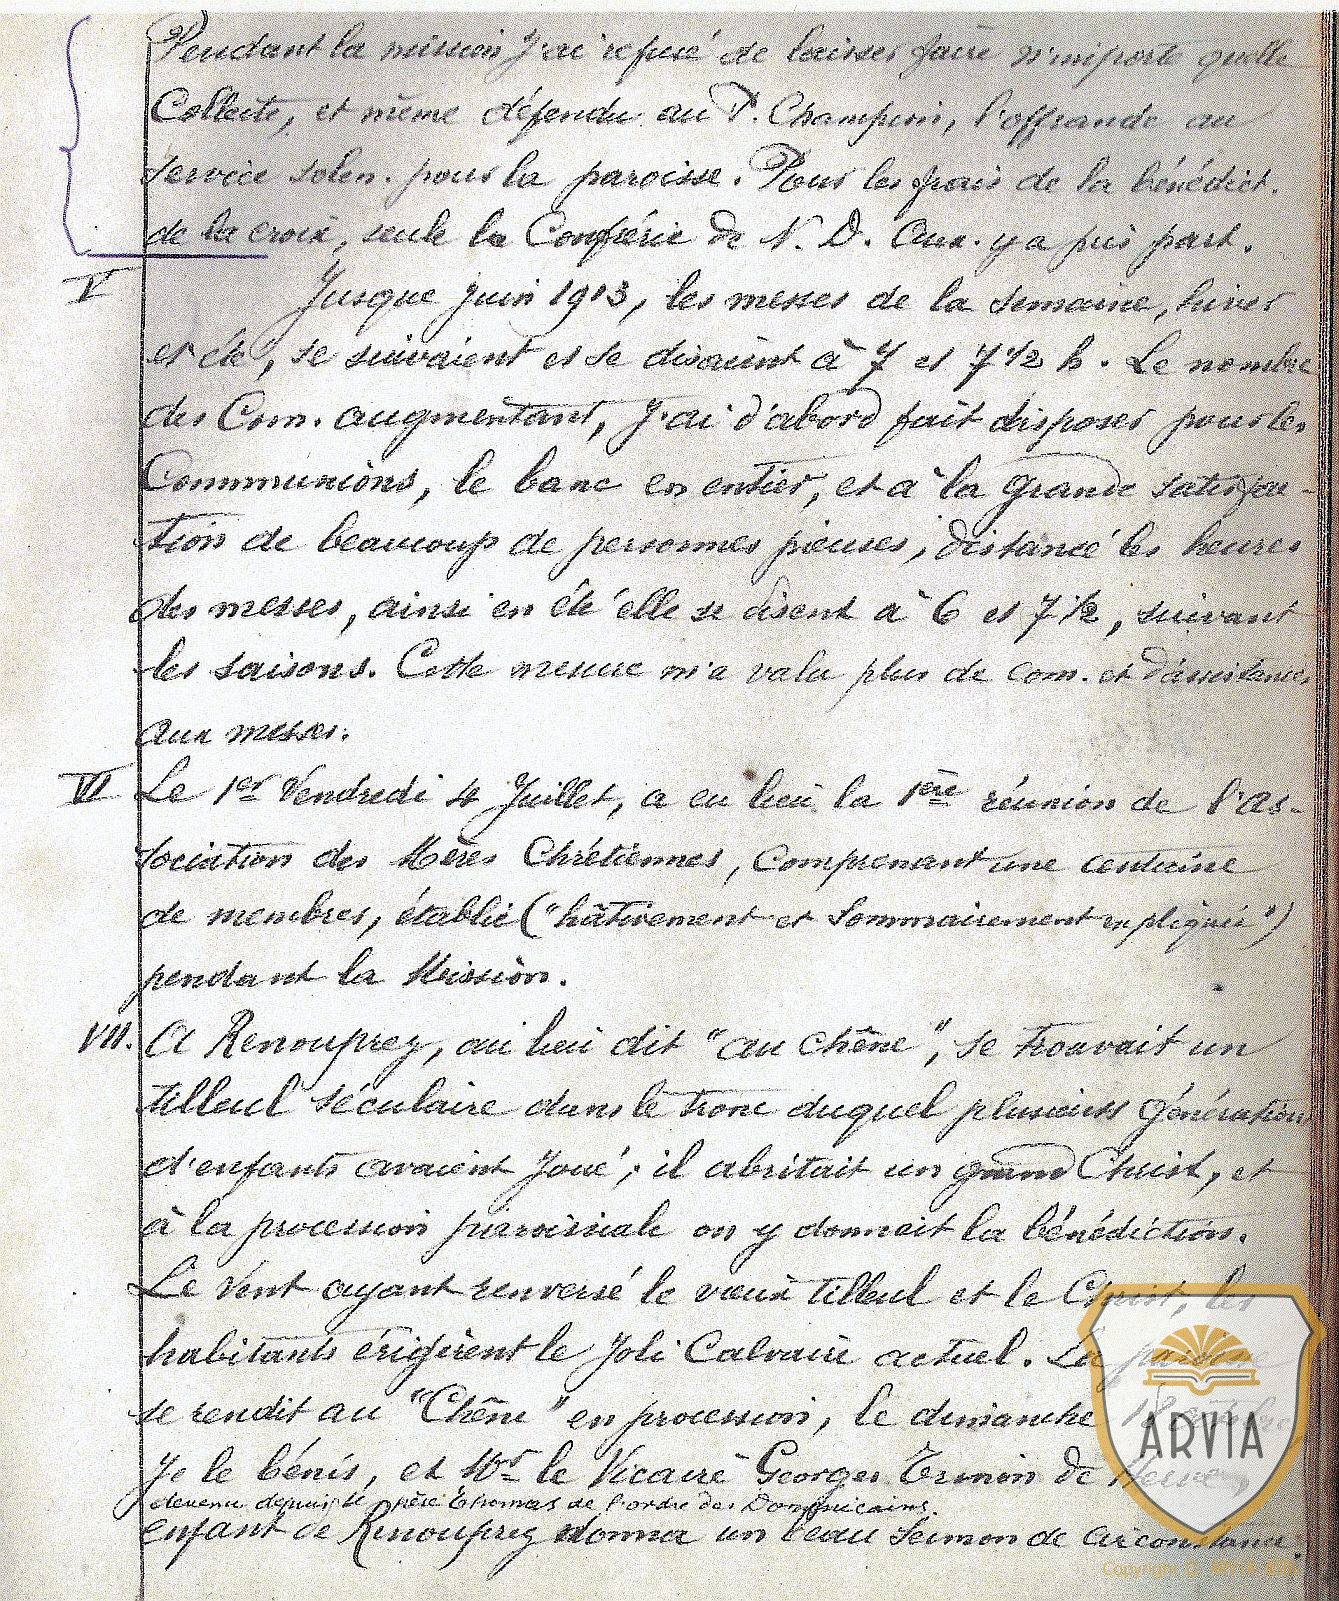 Pendant la mission j'ai refusé de laisser faire n'importe quelle
Collecte, et même défendu au P. Champion, l'offrande au
service solen. pour la paroisse. Pour les frais de la bénédict.
de la croix, seule la Confrérie de N. D. Aux. y a pris part.
V Jusque juin 1913, les messes de la semaine, hiver
et été, se suivaient et se disaient à 7 et 7 1/2 h. Le nombre
des Com. augmentant, j'ai d'abord fait disposer pour les
Communions, le banc en entier, et à la grande satisfac-
tion de beaucoup de personnes pieuses, distancé les heures
des messes, ainsi en été elle se disent à 6 et 7 1/2, suivant
les saisons. Cette mesure m'a valu plus de com. et d'assistances
aux messes.
VI Le 1er Vendredi 4 Juillet, a eu lieu la 1ère réunion de l'As-
sociation des Mères Chrétiennes, comprenant une centaine
de membres, établie ("hâtivement et sommairement expliquée")
pendant la Mission.
VII. A Renouprez, au lieu dit "au chêne", se trouvait un
tilleul séculaire dans le tronc duquel plusieurs générations
d'enfants avaient joué; il abritait un grand Christ, et
à la procession paroissiale on y donnait la bénédiction.
Le vent ayant renversé le vieux tilleul et le Christ, les
habitants érigèrent le joli Calvaire actuel. La paroisse
se rendit au "Chêne" en procession, le dimanche
Je le bénis, et Mr le Vicaire Georges Ternon de Herve,
devenu depuis le père Thomas de l'ordre des Dominicains.
enfant de Renouprez donna un beau sermon de circonstance.
ARVIA
Copyright © ARVIA ASBL